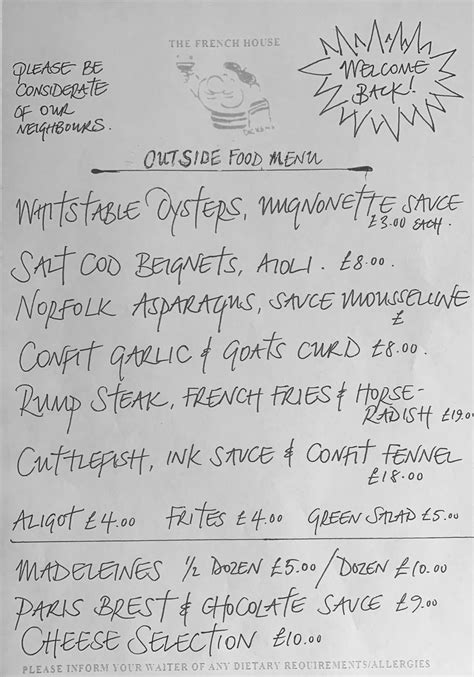 THE FRENCH HOUSE
PLEASE BE
CONSIDERATE
OF OUR
NEIGHBOURS.
WELCOME
BACK!
OUTSIDE FOOD MENU
WHITSTABLE OYSTERS, MIGNONETTE SAUCE
£3.00 EACH.
SALT COD BEIGNETS, AIOLI. £8.00.
NORFOLK ASPARAGUS, SAUCE MOUSSELINE
£
CONFIT GARLIC & GOATS CURD £8.00.
RUMP STEAK, FRENCH FRIES & HORSE-
RADISH £19.00
CUTTLEFISH, INK SAUCE & CONFIT FENNEL
£18.00
ALIGOT £4.00 FRITES £4.00 GREEN SALAD £5.00
MADELEINES 1/2 DOZEN £5.00 / DOZEN £10.00
PARIS BREST & CHOCOLATE SAUCE £9.00
CHEESE SELECTION £10.00
PLEASE INFORM YOUR WAITER OF ANY DIETARY REQUIREMENTS/ALLERGIES